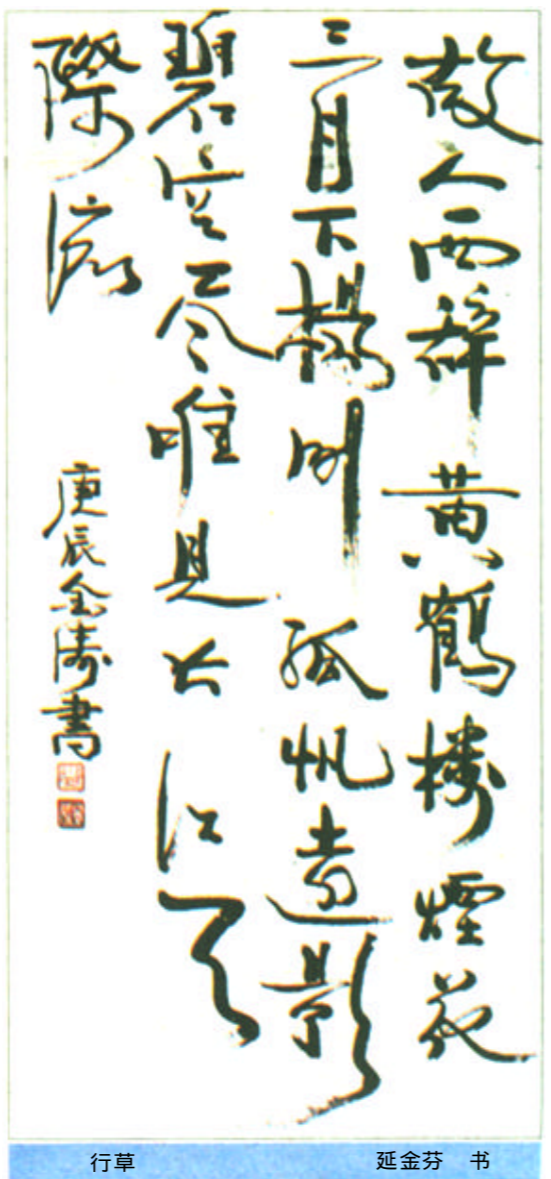 故人西辞黄鶴楼煙花
三月下揚州孤帆遠影
碧空尽唯見长江天
際流
庚辰金涛書
行草 延金芬 书